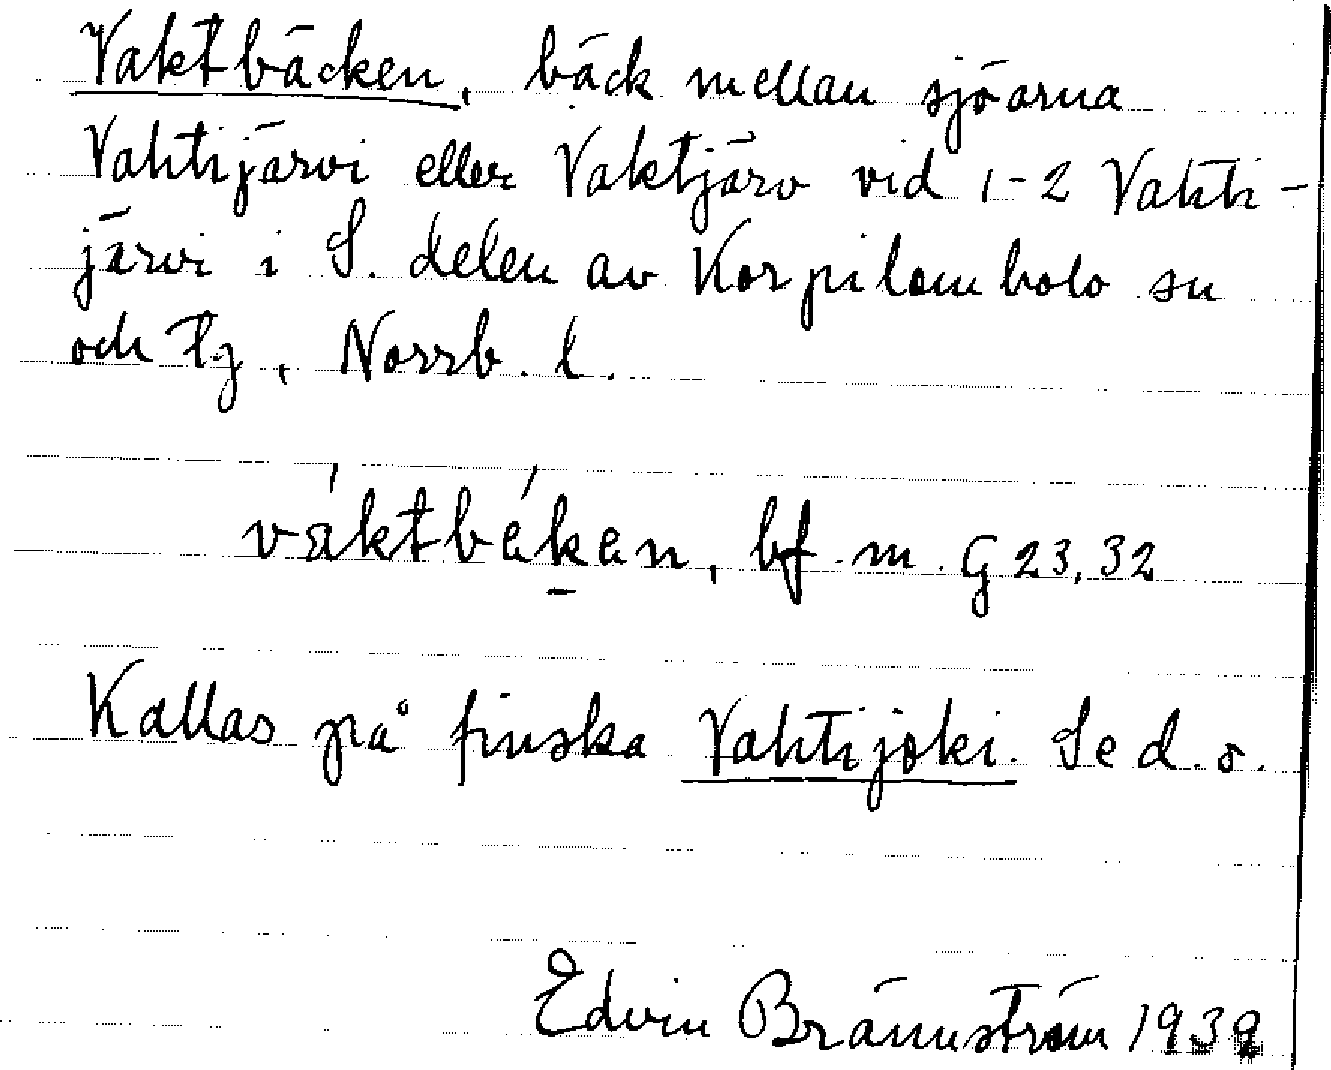 Vaktbäcken, bäck mellan sjöarna
Vahtijärvi eller Vaktjärv vid 1-2 Vahti-
järvi i S. delen av Korpilombolo sn
och tg, Norrb. l.
váktbékan, bf. m. G 23,32
Kallas på finska Vahtijoki. Se d. o.
Edvin Brännström 1939